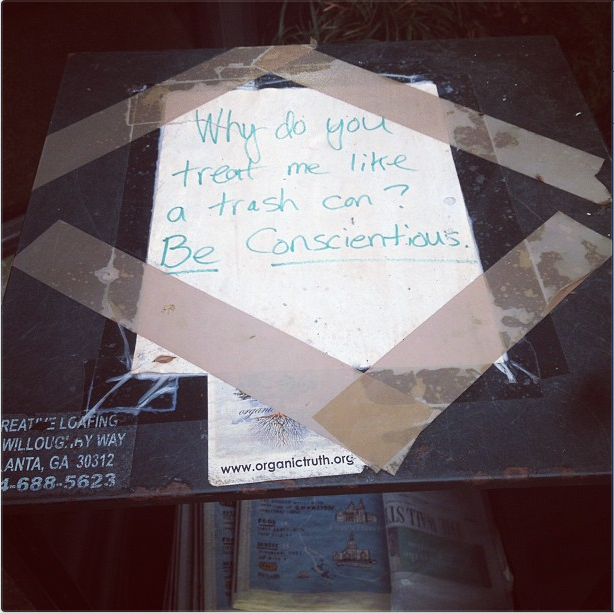 Why do you
treat me like
a trash can?
Be Conscientious.
organi
www.organictruth.org
REATIVE LOAFING
WILLOUGHBY WAY
LANTA, GA 30312
4-688-5623